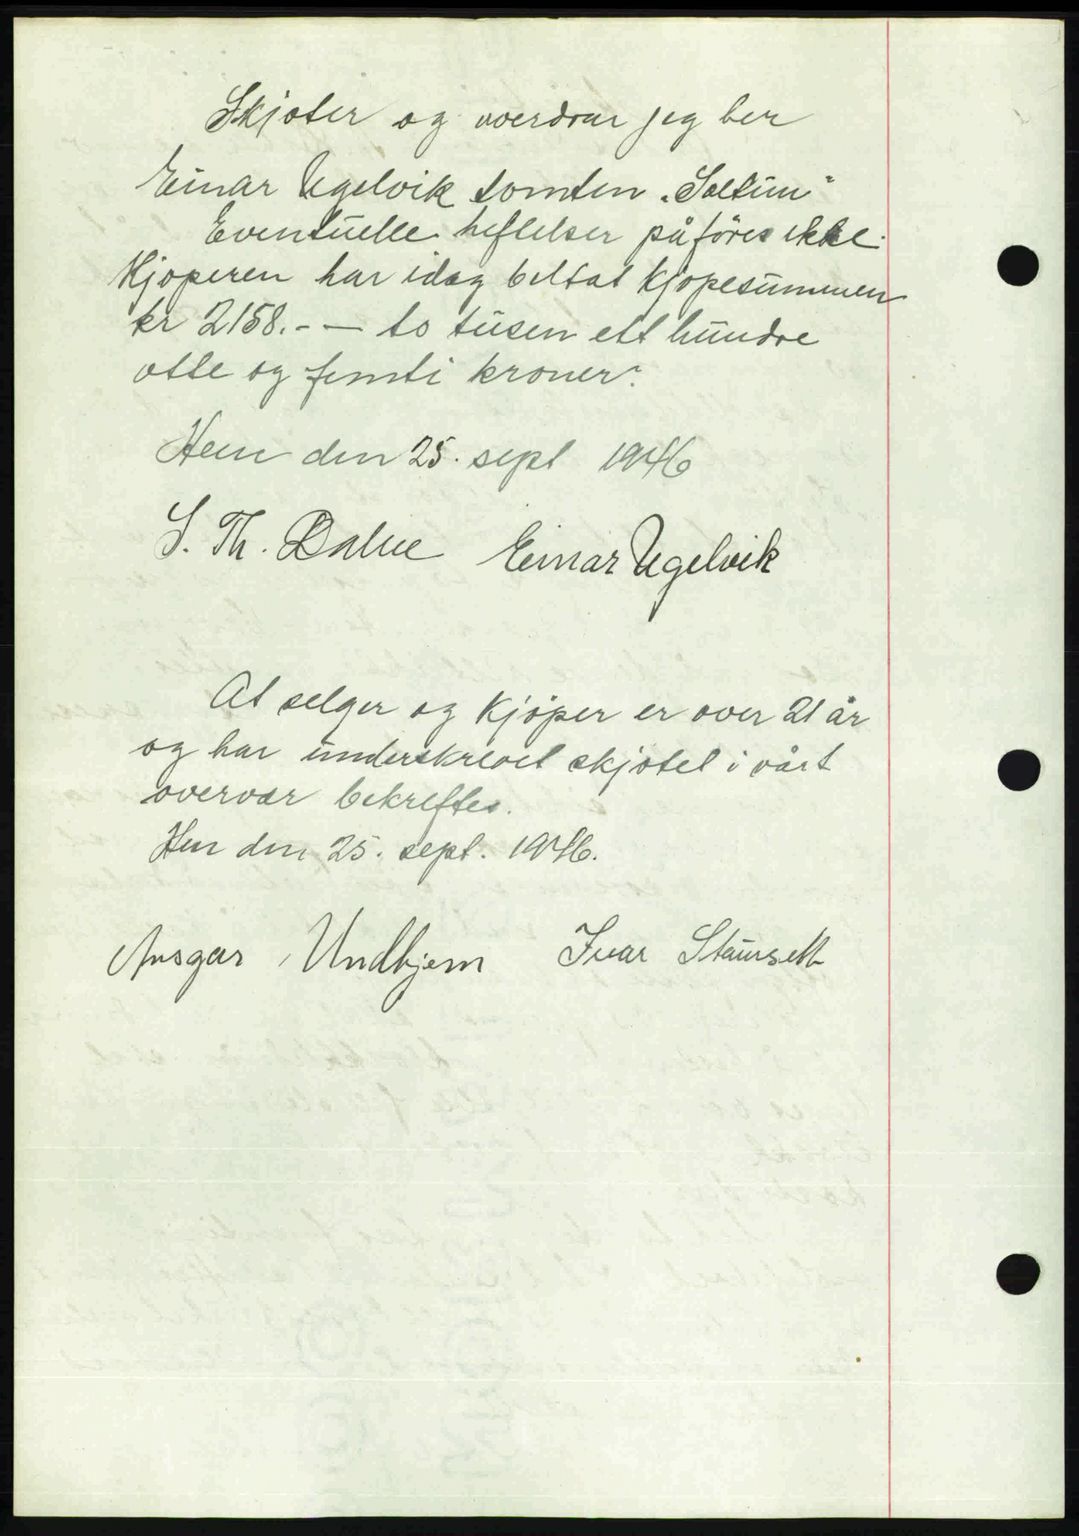 Skjøter og overdrar jeg her
Einar Ugelvik tomten „Soltun"
Eventuelle heftelser påføres ikke.
Kjøperen har idag beltat kjøpesummen
kr 2158.- — to tusen ett hundre
otte og femti kroner.
Hen den 25. sept 1946
S. Th. Einar Ugelvik
At selger og kjøper er over 21 år
og har underskrevet skjøtet i vårt
overvær bekreftes.
Hen den 25. sept. 1946.
Ansgar Undhjem Ivar Staurseth